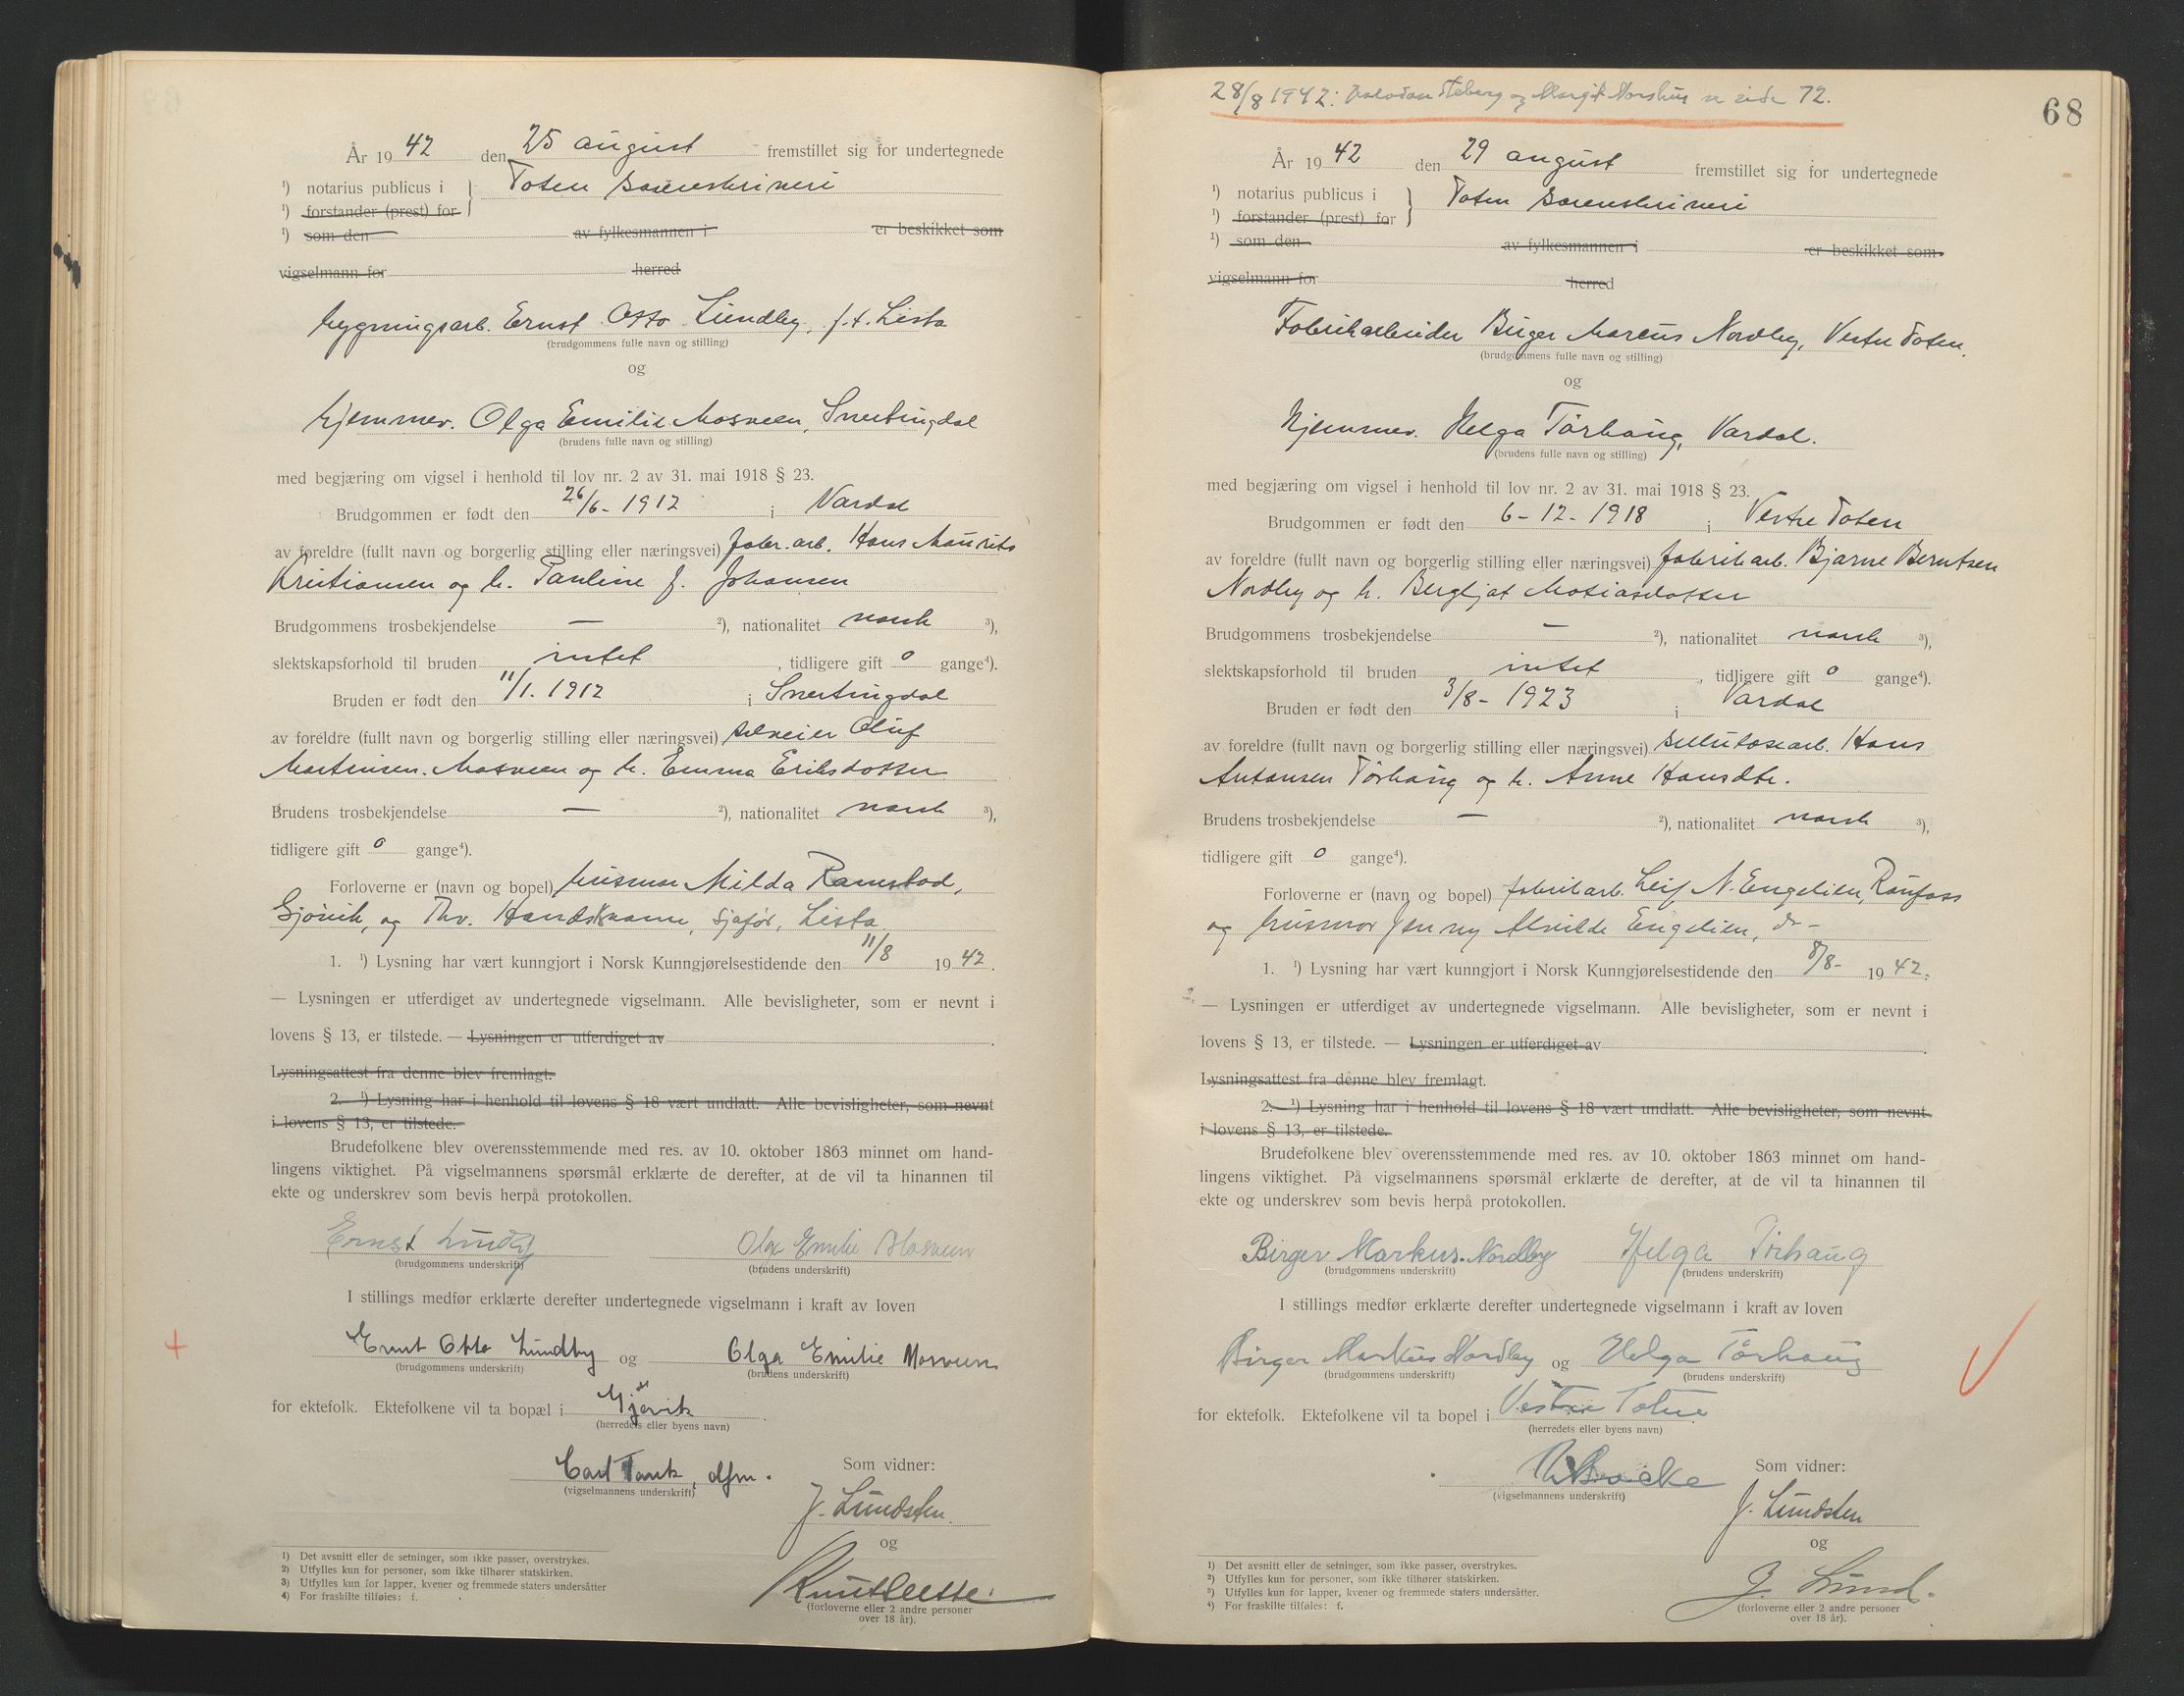 År 19 42 den 25 august fremstillet sig for undertegnede
¹) notarius publicus i } Toten sorenskriveri
¹) forstander (prest) for
¹) som den av fylkesmannen i er beskikket som
vigselmann for herred
bygningsarb. Ernst Otto Lundby, f.t. Lista
(brudgommens fulle navn og stilling)
og
hjemmev. Olga Emilie Mosveen, Snertingdal
(brudens fulle navn og stilling)
med begjæring om vigsel i henhold til lov nr. 2 av 31. mai 1918 § 23.
Brudgommen er født den 26/6- 1912 i Vardal
av foreldre (fullt navn og borgerlig stilling eller næringsvei) fabr. arb. Hans Maurits
Kristiansen og h. Pauline f. Johansen
Brudgommens trosbekjendelse — ²), nationalitet norsk ³),
slektskapsforhold til bruden intet, tidligere gift 0 gange⁴).
Bruden er født den 11/1. 1912 i Snertingdal
av foreldre (fullt navn og borgerlig stilling eller næringsvei) selveier Oluf
Martinsen Mosveen og h. Emma Eriksdotter
Brudens trosbekjendelse — ²), nationalitet norsk ³),
tidligere gift 0 gange⁴).
Forloverne er (navn og bopel) husmor Milda Ramstad,
Gjövik, og Thv. Handskvame, sjafør, Lista
1. ¹) Lysning har vært kunngjort i Norsk Kunngjørelsestidende den 11/8 19 42.
— Lysningen er utferdiget av undertegnede vigselmann. Alle bevisligheter, som er nevnt i
lovens § 13, er tilstede. — Lysningen er utferdiget av
Lysningsattest fra denne blev fremlagt.
2. ¹) Lysning har i henhold til lovens § 18 vært undlatt. Alle bevisligheter, som nevnt
i lovens § 13, er tilstede.
Brudefolkene blev overensstemmende med res. av 10. oktober 1863 minnet om hand-
lingens viktighet. På vigselmannens spørsmål erklærte de derefter, at de vil ta hinannen til
ekte og underskrev som bevis herpå protokollen.
Ernst Lundby Olga Emilie Mosveen
(brudgommens underskrift) (brudens underskrift)
I stillings medfør erklærte derefter undertegnede vigselmann i kraft av loven
Ernst Otto Lundby og Olga Emilie Mosveen
(brudgommens underskrift) (brudens underskrift)
for ektefolk. Ektefolkene vil ta bopæl i Gjøvik
(herredets eller byens navn)
Carl Tank, dfm. Som vidner:
(vigselmannens underskrift)
J. Lundsten.
og
(forloverne eller 2 andre personer
over 18 år).
1) Det avsnitt eller de setninger, som ikke passer, overstrykes.
2) Utfylles kun for personer, som ikke tilhører statskirken.
3) Utfylles kun for lapper, kvener og fremmede staters undersåtter
4) For fraskilte tilføies: f.
28/8 1942: Steberg og Margit Norshus se side 72.
68
År 19 42 den 29 august fremstillet sig for undertegnede
¹) notarius publicus i } Toten sorenskriveri
¹) forstander (prest) for
¹) som den av fylkesmannen i er beskikket som
vigselmann for herred
Fabrikarbeider Birger Marcus Nordby, Vestre Toten.
(brudgommens fulle navn og stilling)
og
Hjemmev. Helga Tørhaug, Vardal.
(brudens fulle navn og stilling)
med begjæring om vigsel i henhold til lov nr. 2 av 31. mai 1918 § 23.
Brudgommen er født den 6-12-1918 i Vestre Toten
av foreldre (fullt navn og borgerlig stilling eller næringsvei) fabrikarb. Bjarne Berntsen
Nordby og h. Bergljot Matiasdotter
Brudgommens trosbekjendelse — ²), nationalitet norsk ³),
slektskapsforhold til bruden intet, tidligere gift 0 gange⁴).
Bruden er født den 3/8- 1923 i Vardal
av foreldre (fullt navn og borgerlig stilling eller næringsvei) sellulosearb. Hans
Antonsen Tørhaug og h. Anne Hansdtr.
Brudens trosbekjendelse — ²), nationalitet norsk ³),
tidligere gift 0 gange⁴).
Forloverne er (navn og bopel) fabrikarb. Leif N. Engelien, Raufoss
og husmor Jenny Alvilde Engelien, do -
1. ¹) Lysning har vært kunngjort i Norsk Kunngjørelsestidende den 8/8- 19 42.
— Lysningen er utferdiget av undertegnede vigselmann. Alle bevisligheter, som er nevnt i
lovens § 13, er tilstede. — Lysningen er utferdiget av
Lysningsattest fra denne blev fremlagt.
2. ¹) Lysning har i henhold til lovens § 18 vært undlatt. Alle bevisligheter, som nevnt
i lovens § 13, er tilstede.
Brudefolkene blev overensstemmende med res. av 10. oktober 1863 minnet om hand-
lingens viktighet. På vigselmannens spørsmål erklærte de derefter, at de vil ta hinannen til
ekte og underskrev som bevis herpå protokollen.
Birger Markus Nordby Helga Tørhaug
(brudgommens underskrift) (brudens underskrift)
I stillings medfør erklærte derefter undertegnede vigselmann i kraft av loven
Birger Markus Nordby og Helga Tørhaug
(brudgommens underskrift) (brudens underskrift)
for ektefolk. Ektefolkene vil ta bopel i Vestre Toten
(herredets eller byens navn)
Som vidner:
(vigselmannens underskrift)
J. Lundsten
og
J. Lund.
(forloverne eller 2 andre personer
over 18 år).
1) Det avsnitt eller de setninger, som ikke passer, overstrykes.
2) Utfylles kun for personer, som ikke tilhører statskirken.
3) Utfylles kun for lapper, kvener og fremmede staters undersåtter.
4) For fraskilte tilføies: f.